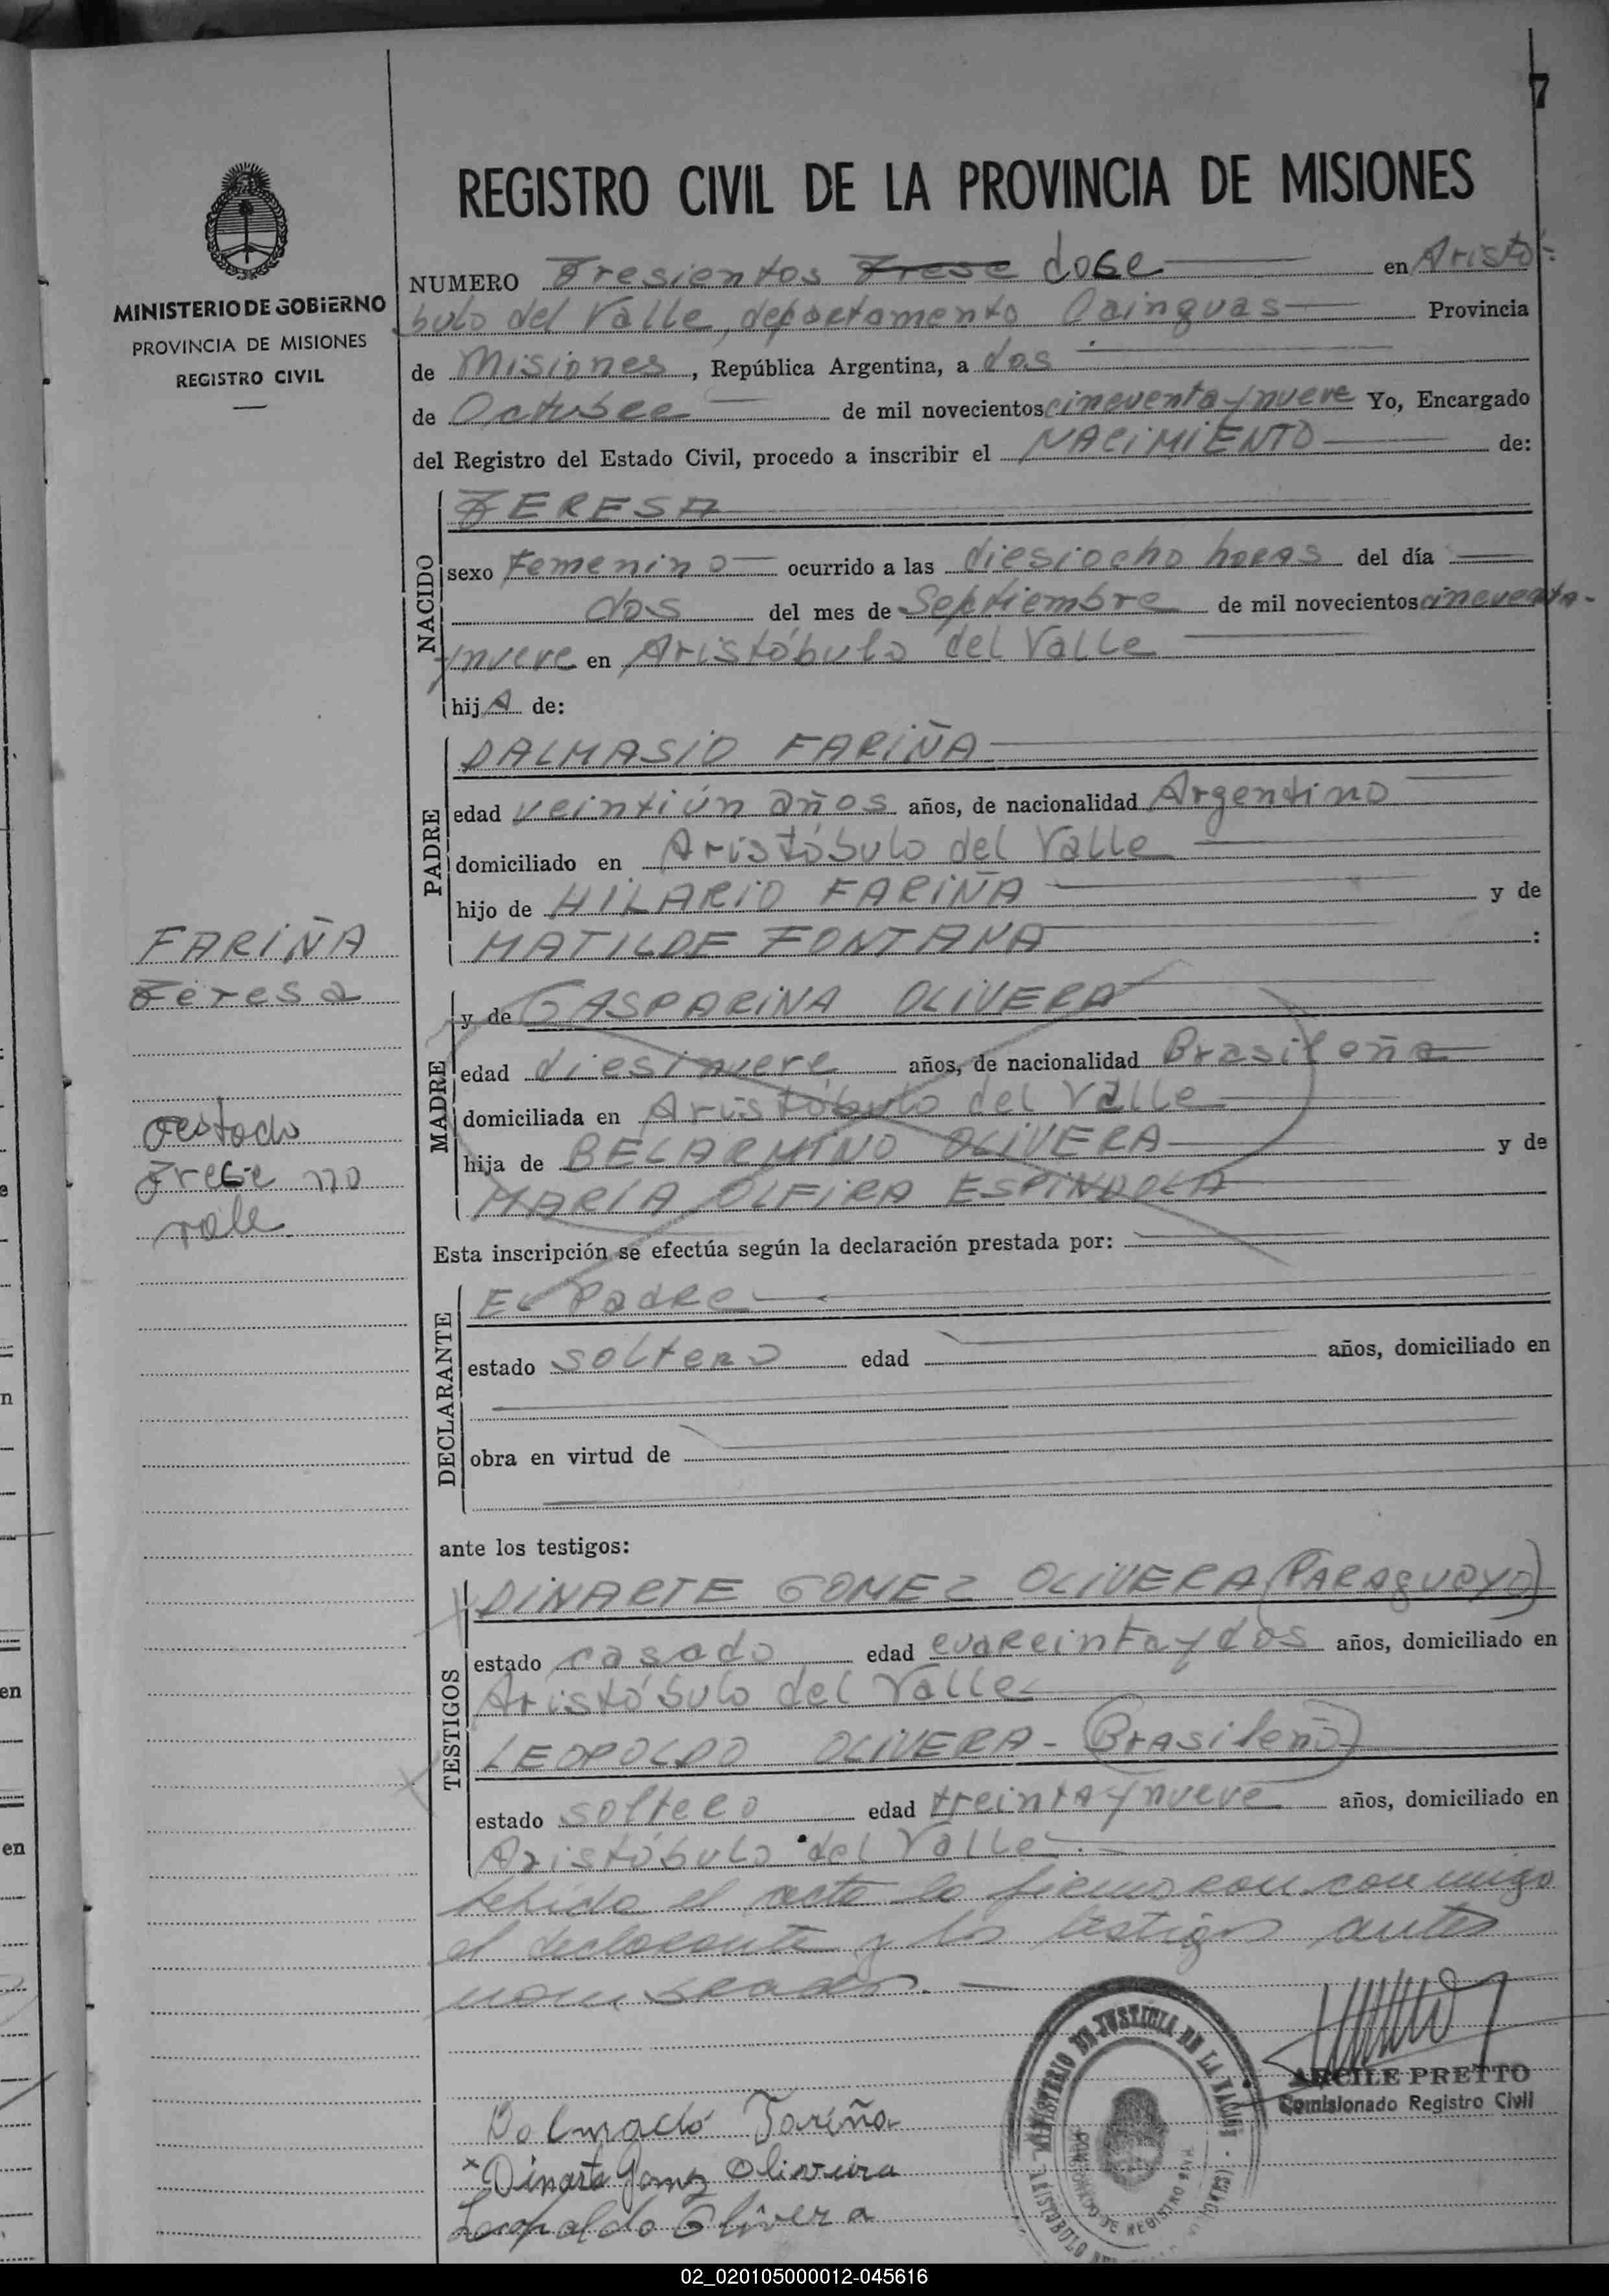 7
REGISTRO CIVIL DE LA PROVINCIA DE MISIONES
MINISTERIO DE GOBIERNO
PROVINCIA DE MISIONES
REGISTRO CIVIL
NUMERO Tresientos Trese doce en Aristó-
bulo del Valle, departamento Cainguas Provincia
de Misiones, República Argentina, a dos
de Octubre de mil novecientos cincuenta y nueve Yo, Encargado
del Registro del Estado Civil, procedo a inscribir el NACIMIENTO de:
NACIDO
TERESA
sexo Femenino ocurrido a las diesiocho horas del día
dos del mes de Septiembre de mil novecientos cincuenta-
ynueve en Aristóbulo del Valle
hij A de:
PADRE
DALMASIO FARIÑA
edad veintiún años años, de nacionalidad Argentino
domiciliado en Aristóbulo del Valle
hijo de HILARIO FARIÑA y de
MATILDE FONTANA :
FARIÑA
Teresa
MADRE
y de GASPARINA OLIVERA
edad diesinueve años, de nacionalidad Brasileña
domiciliada en Aristóbulo del Valle
hija de BELARMINO OLIVERA y de
MARÍA OLFIRA ESPINDOLA
Testado
Trece no
vale
Esta inscripción se efectúa según la declaración prestada por:
DECLARANTE
El Padre
estado soltero edad años, domiciliado en
obra en virtud de
ante los testigos:
TESTIGOS
DINARTE GOMEZ OLIVERA (PARAGUAYO)
estado casado edad cuareinta y dos años, domiciliado en
Aristóbulo del Valle
LEOPOLDO OLIVERA - (Brasileño)
estado soltero edad treinta y nueve años, domiciliado en
Aristóbulo del Valle.-
Lehida el acta la firmaron conmigo
el declarante y los testigos antes
nombrados.-
MINISTERIO DE JUSTICIA DE LA NACION
DE REGISTRO
ARISTOBULO
ARCILE PRETTO
Comisionado Registro Civil
Dalmacio Fariña
x Dinarte Gomez Oliveira
Leopoldo Olivera
en
en
02_020105000012-045616